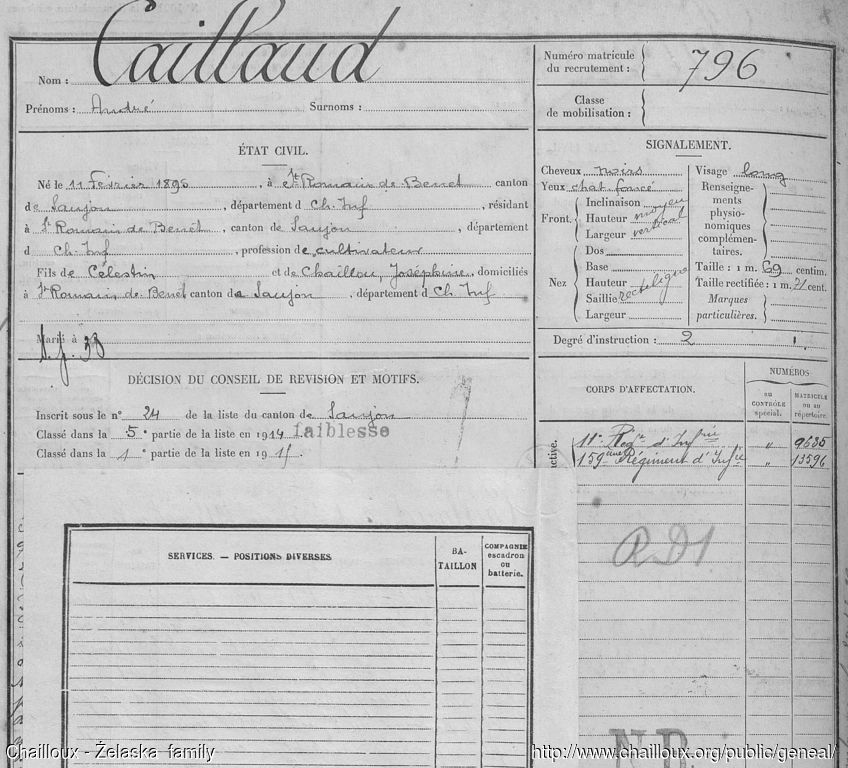 Nom : Caillaud
Prénoms : André Surnoms :
Numéro matricule du recrutement : 796
Classe de mobilisation :
ÉTAT CIVIL.
Né le 11 Février 1895, à St Romain de Benet canton
de Saujon, département d Ch. Inf, résidant
à St Romain de Benet, canton de Saujon, département
d Ch. Inf, profession de cultivateur
Fils de Célestin et de Chaillou, Joséphine, domiciliés
à St Romain de Benet canton de Saujon, département d Ch. Inf
Marié à
SIGNALEMENT.
Cheveux noirs
Yeux chat. foncé
Front. Inclinaison
Hauteur moyen
Largeur vertical
Nez Dos
Base
Hauteur
Saillie rectiligne
Largeur
Visage long
Renseignements physionomiques complémentaires.
Taille : 1 m. 69 centim.
Taille rectifiée : 1 m. 71 cent.
Marques particulières.
Degré d'instruction : 2
DÉCISION DU CONSEIL DE REVISION ET MOTIFS.
Inscrit sous le n° 24 de la liste du canton de Saujon
Classé dans la 5e partie de la liste en 1914. faiblesse
Classé dans la 1e partie de la liste en 1915
CORPS D'AFFECTATION.
NUMÉROS
au CONTRÔLE spécial.
MATRICULE ou au répertoire.
11e Régt d'Infrie " 9685
159ème Régiment d'Infie " 13596
RD1
SERVICES. — POSITIONS DIVERSES
BATAILLON
COMPAGNIE escadron ou batterie.
Chailloux - Żelaska family
http://www.chailloux.org/public/geneal/